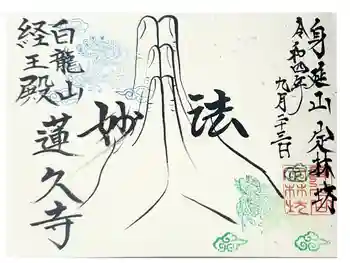 身延山 定林坊
令和四年
九月二十三日
妙法
白龍山
経王殿
蓮久寺
定林坊